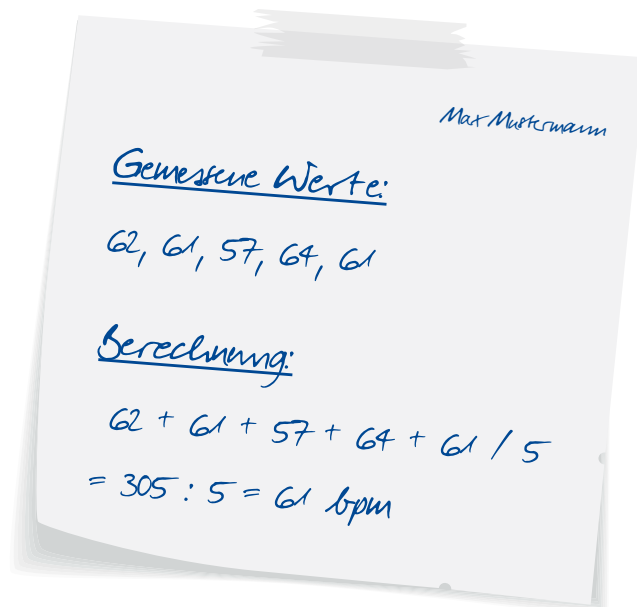 Max Mustermann
Gemessene Werte:
62, 61, 57, 64, 61
Berechnung:
62 + 61 + 57 + 64 + 61 / 5
= 305 : 5 = 61 bpm